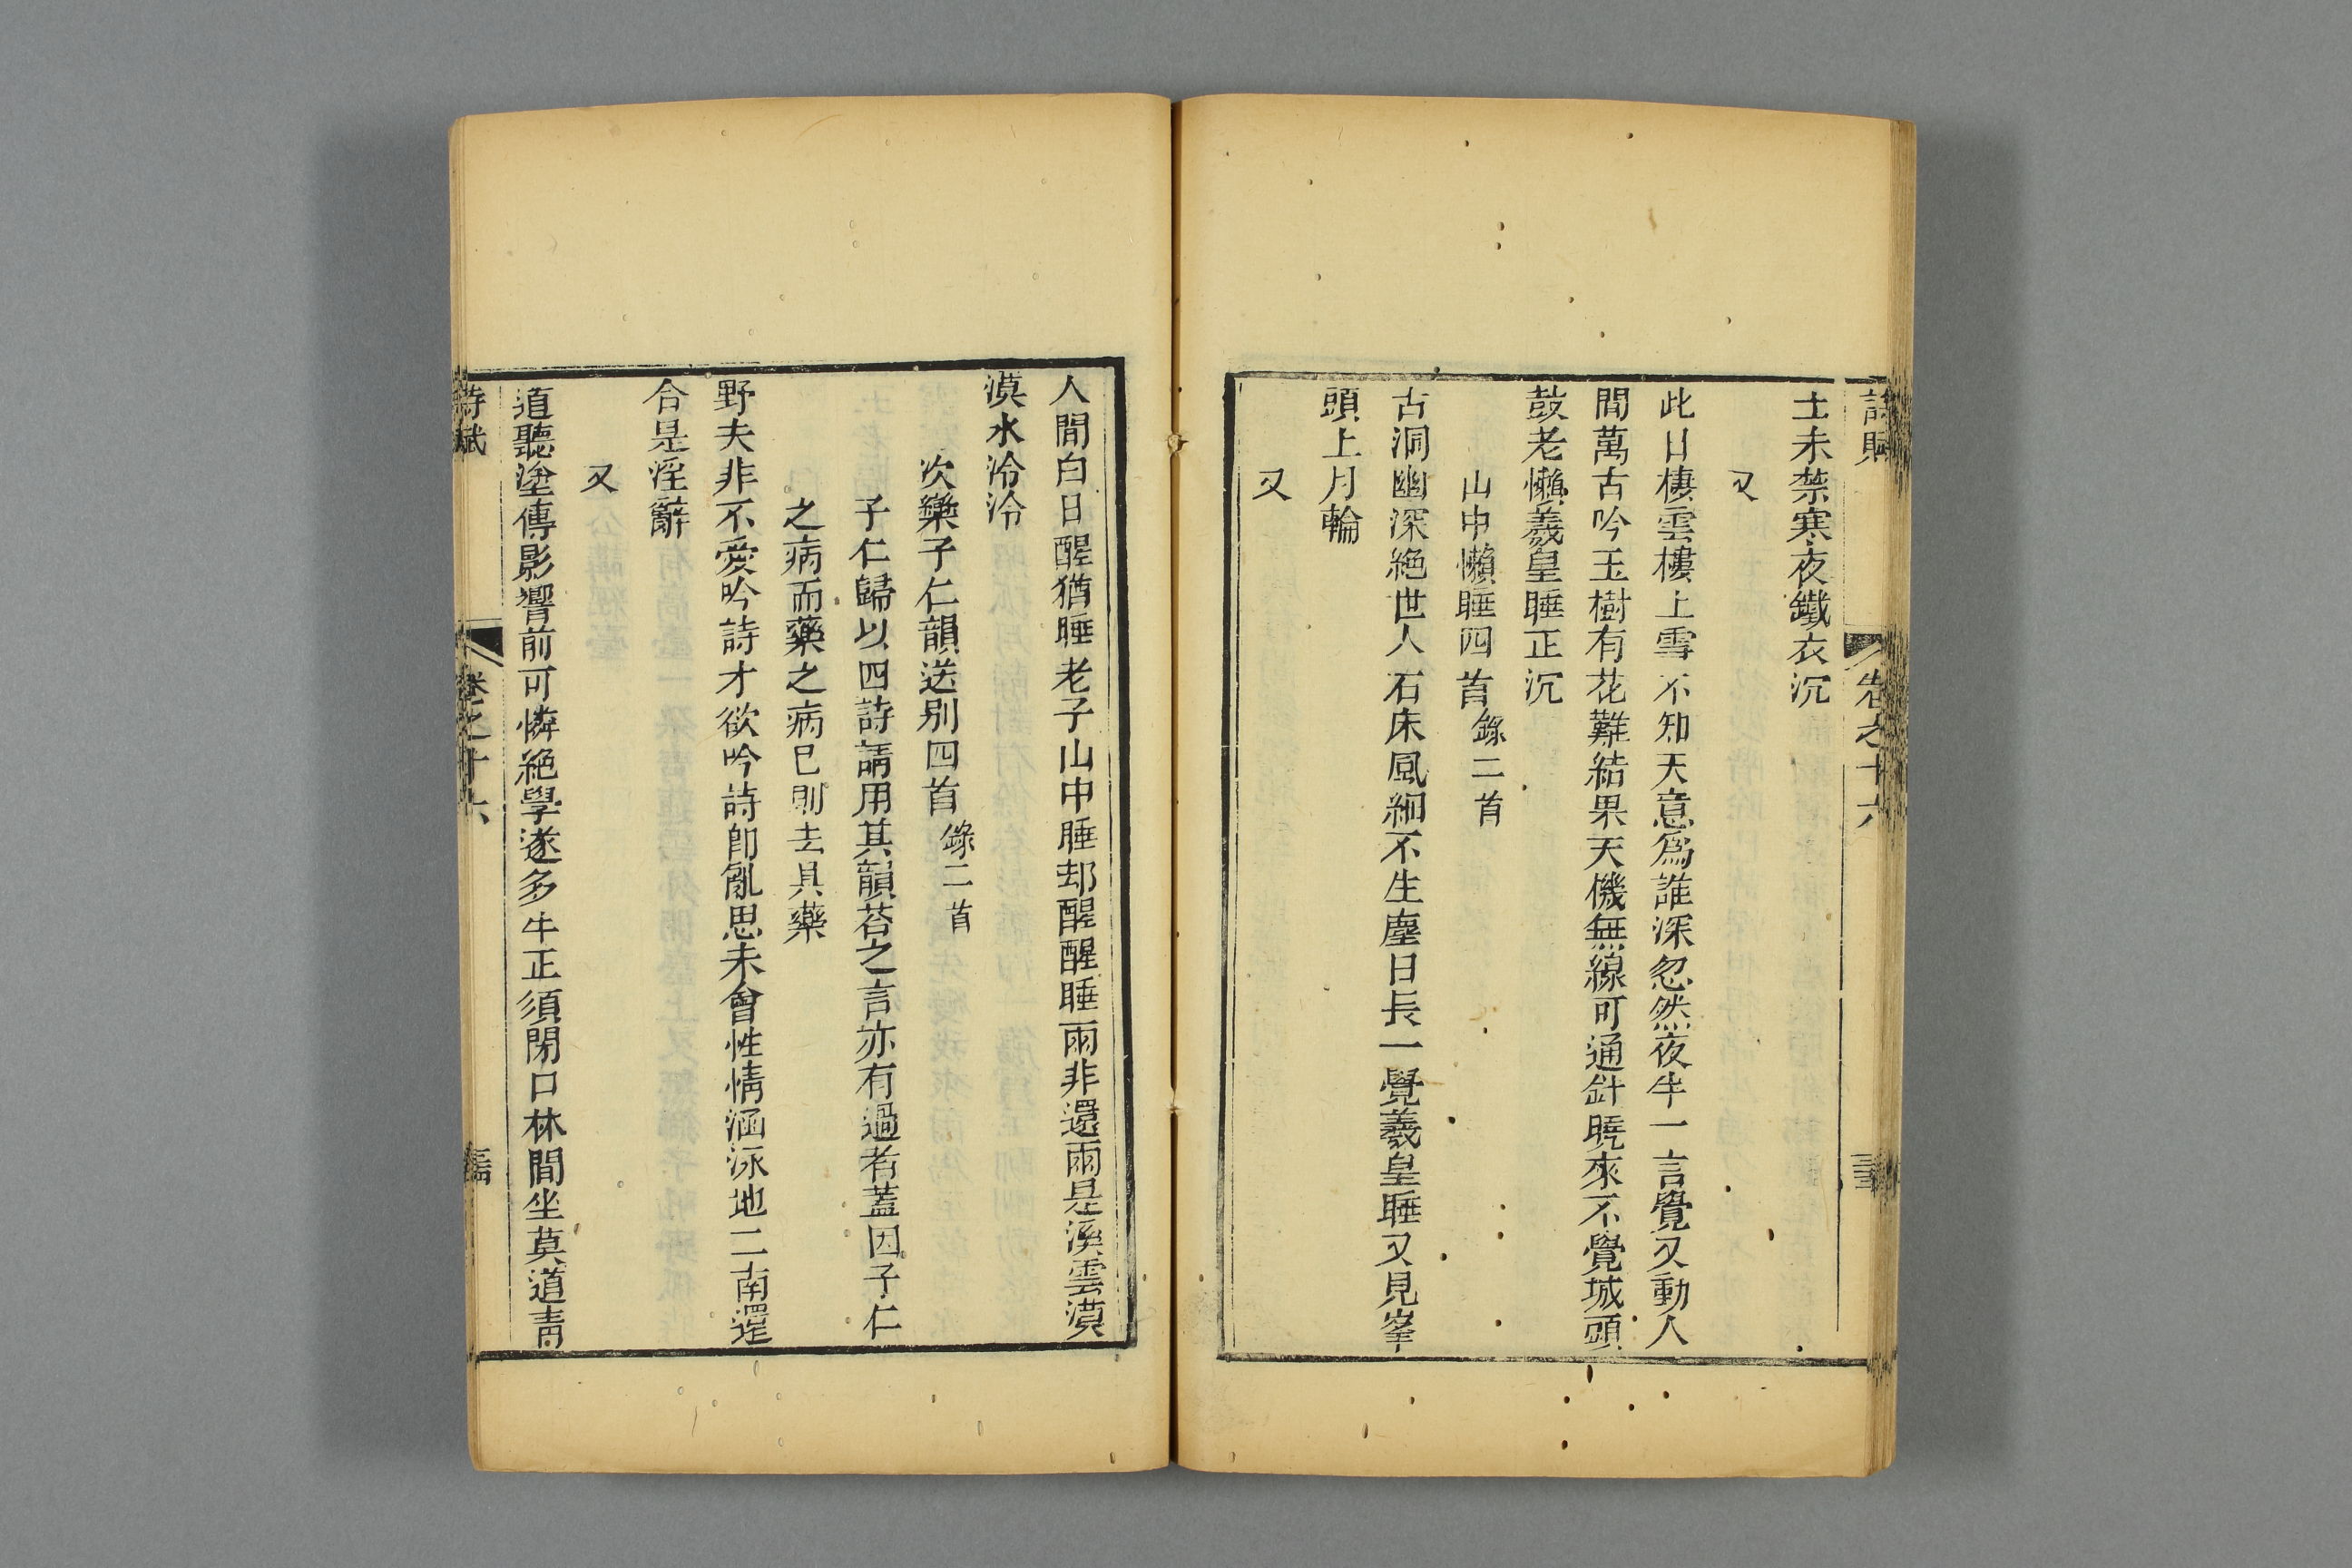 詩賦 卷之十六
士未禁寒夜鐵衣沉
又
此日棲雲樓上雪不知天意爲誰深忽然夜半一言覺又動人
間萬古吟玉樹有花難結果天機無線可通針曉來不覺城頭
鼓老懶羲皇睡正沉
山中懶睡四首錄二首
古洞幽深絶世人石床風細不生塵日長一覺羲皇睡又見峯
頭上月輪
又
人間白日醒猶睡老子山中睡却醒醒睡兩非還兩是溪雲漠
漠水泠泠
次欒子仁韻送别四首錄二首
子仁歸以四詩請用其韻荅之言亦有過者蓋因子仁
之病而藥之病已則去其藥
野夫非不愛吟詩才欲吟詩卽亂思未會性情涵泳地二南還
合是淫辭
又
道聽塗傳影響前可憐絶學遂多年正須閉口林間坐莫道靑
詩賦 卷之十六